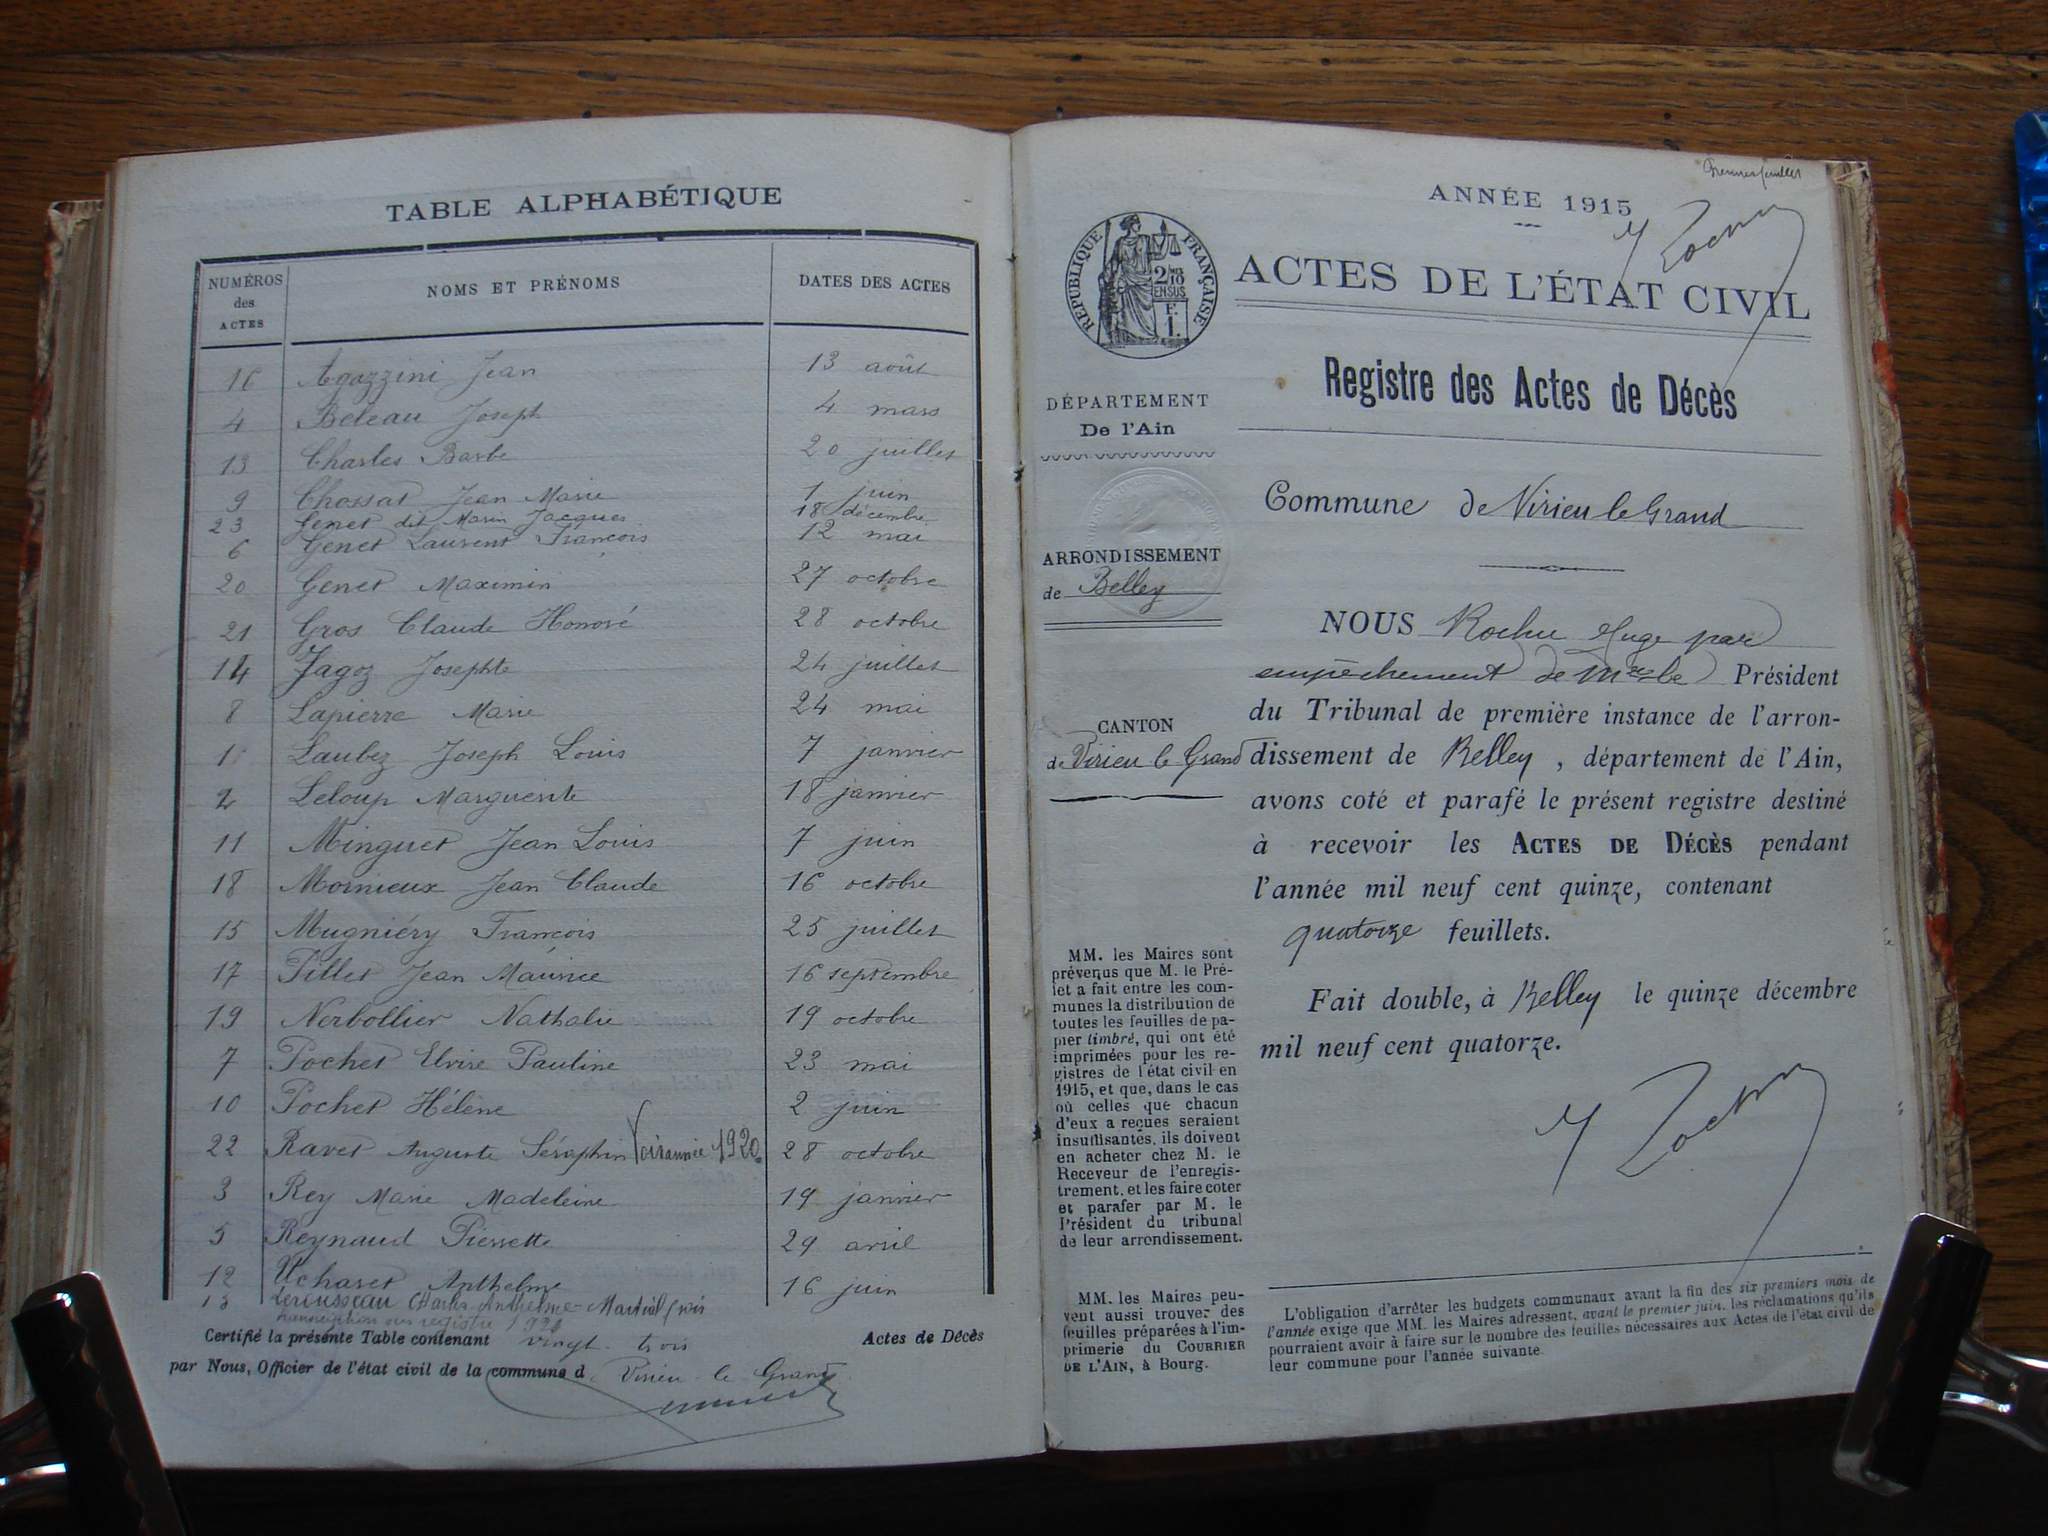 TABLE ALPHABÉTIQUE
NUMÉROS des ACTES NOMS ET PRÉNOMS DATES DES ACTES
16 Agazzini Jean 13 août
4 Beleau Joseph 4 mars
13 Charles Barbe 20 juillet
9 Chossat Jean Marie 1 juin
23 Genet dit Marin Jacques 18 décembre
6 Genet Laurent François 12 mai
20 Genet Maximin 27 octobre
21 Gros Claude Honoré 28 octobre
14 Jagoz Josephte 24 juillet
8 Lapierre Marie 24 mai
1 Laubez Joseph Louis 7 janvier
2 Leloup Marguerite 18 janvier
11 Minguet Jean Louis 7 juin
18 Mornieux Jean Claude 16 octobre
15 Mugniéry François 25 juillet
17 Pillet Jean Maurice 16 septembre
19 Nerbollier Nathalie 19 octobre
7 Pochet Elvire Pauline 23 mai
10 Pochet Hélène 2 juin
22 Ravet Auguste Séraphin Voir année 1920 28 octobre
3 Rey Marie Madeleine 19 janvier
5 Reynaud Pierrette 29 avril
12 Ucharet Anthelme 16 juin
Charles Anthelme Martial
registre 1920
Certifié la présente Table contenant vingt-trois Actes de Décès
par Nous, Officier de l'état civil de la commune d Virieu-le-Grand
ANNÉE 1915
RÉPUBLIQUE FRANÇAISE
2/10 EN SUS
F. 1.
ACTES DE L'ÉTAT CIVIL
Registre des Actes de Décès
DÉPARTEMENT
De l'Ain
Commune de Virieu le Grand
ARRONDISSEMENT
de Belley
CANTON
de Virieu le Grand
MM. les Maires sont
prévenus que M. le Pré-
fet a fait entre les com-
munes la distribution de
toutes les feuilles de pa-
pier timbré, qui ont été
imprimées pour les re-
gistres de l'état civil en
1915, et que, dans le cas
où celles que chacun
d'eux a reçues seraient
insuffisantes, ils doivent
en acheter chez M. le
Receveur de l'enregis-
trement, et les faire coter
et parafer par M. le
Président du tribunal
de leur arrondissement.
MM. les Maires peu-
vent aussi trouver des
feuilles préparées à l'im-
primerie du COURRIER
DE L'AIN, à Bourg.
NOUS Rochu Juge par
empêchement de Mr le Président
du Tribunal de première instance de l'arron-
dissement de Belley, département de l'Ain,
avons coté et parafé le présent registre destiné
à recevoir les ACTES DE DÉCÈS pendant
l'année mil neuf cent quinze, contenant
quatorze feuillets.
Fait double, à Belley le quinze décembre
mil neuf cent quatorze.
L'obligation d'arrêter les budgets communaux avant la fin des six premiers mois de
l'année exige que MM. les Maires adressent, avant le premier juin, les réclamations qu'ils
pourraient avoir à faire sur le nombre des feuilles nécessaires aux Actes de l'état civil de
leur commune pour l'année suivante.